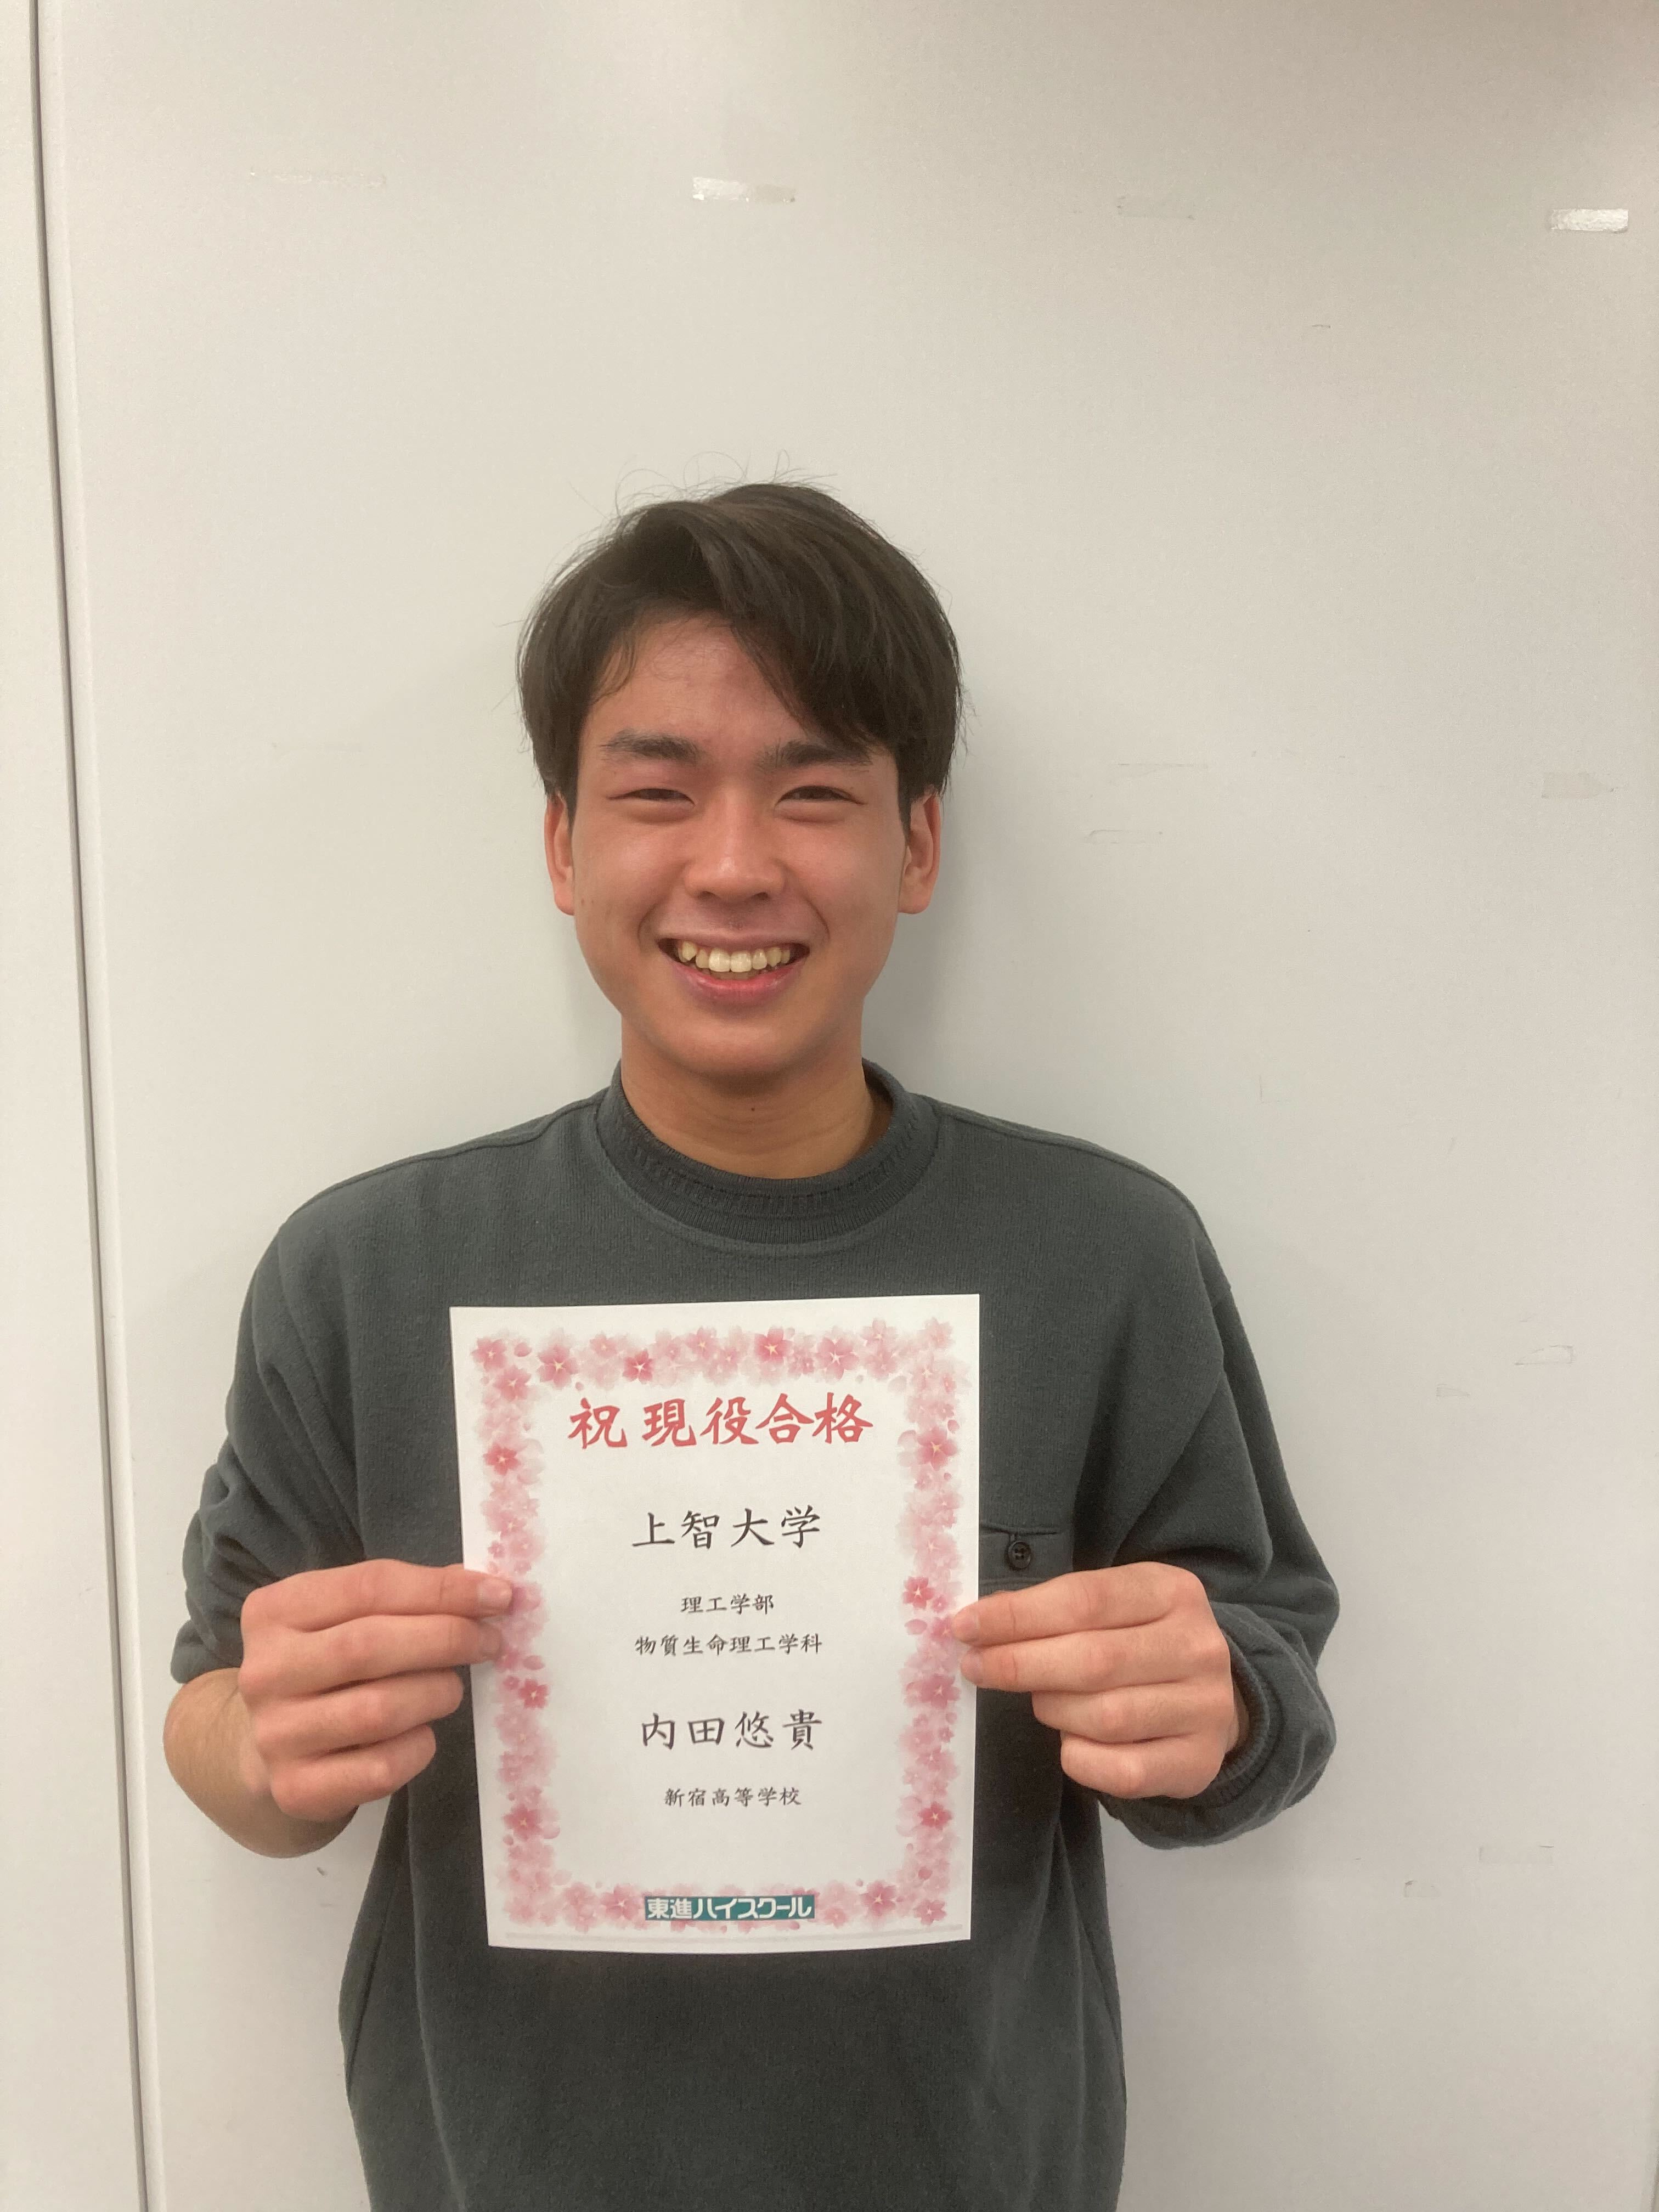 祝 現役合格
上智大学
理工学部
物質生命理工学科
内田悠貴
新宿高等学校
東進ハイスクール